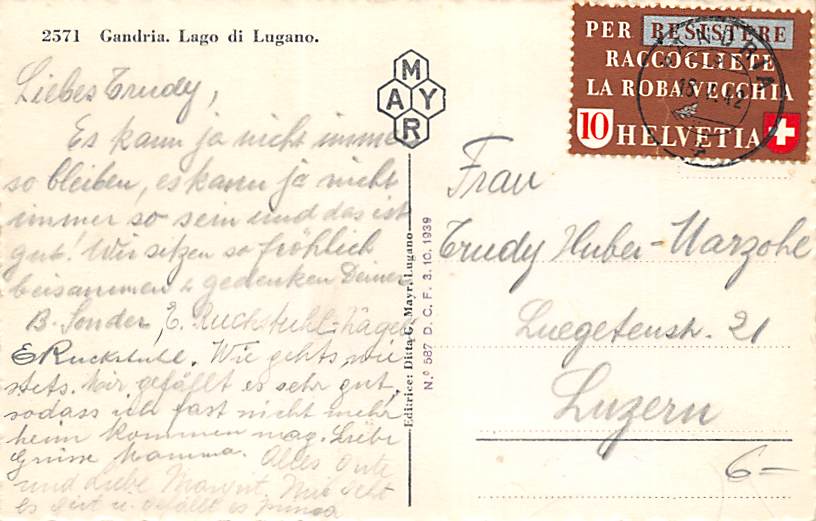 2571 Gandria. Lago di Lugano.
MAYR
PER RESISTERE
RACCOGLIETE
LA ROBA VECCHIA
10 HELVETIA
GANDRIA
Liebes Trudy,
Es kann ja nicht imme
so bleiben, es kann ja nicht
immer so sein und das ist
gut! Wir sitzen so fröhlich
beisammen & gedenken Deiner
B. Sonder, E. Ruckstuhl-Nägeli
E Ruckstuhl. Wie gehts, wie
stets. Mir gefällt es sehr gut,
sodass ich fast nicht mehr
heim kommen mag. Liebe
Grüsse Mamma. Alles Gute
und Liebe
es gut u. gefällt es prima
Editrice: Ditta G. Mayr, Lugano
N.º 587 D. C. F. 3. 10. 1939
Frau
Trudy Huber-Marzohl
Luegetenstr. 21
Luzern
6-